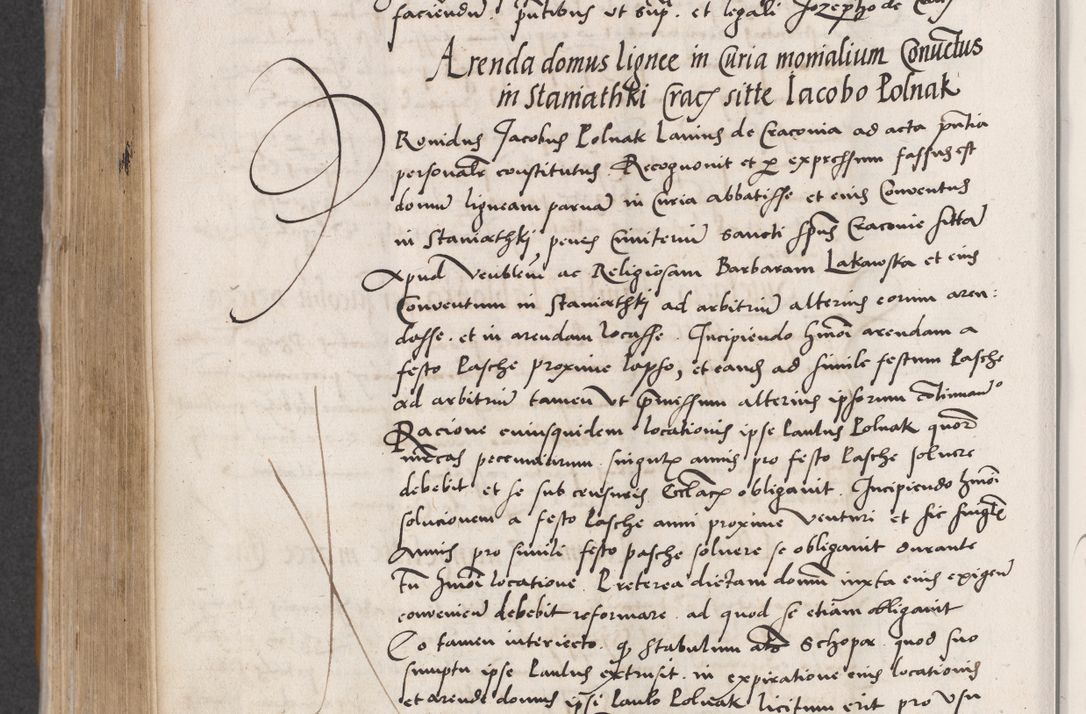 faciendum. pntibus ut sup. et legali Jozepho de Crac
Arenda domus lignee in Curia monialium Conuctus
in Staniathki Crac sitte Iacobo Polnak
Rouidus Jacobus Polnak Lanius de Cracouia ad acta pntia
personalr constitutus Recognouit et p expressum fassus est
domu ligneam parua in Curia abbatisse et eius Conventus
in Staniathki penes Cimiteriu sancti Spus Cracouie sitta
Apud Venblem ac Religiosam Barbaram Lakawska et eius
Conventum in Staniathki ad arbitriu alterius eorum aren:
dasse. et in arendam locasse. Incipiendo hmoi arendam a
festo Pasche proxime lapso, et eand ad simile festum Pasche
ad arbitriu tamen ut pmessum alterius ipsorum
Racione cuiusquidem locationis ipse Paulus Polnak quor
mcas pecuniarum singulis annis pro festo Pasche soluere
debebit et se sub censuris obligauit. Incipiendo hmoi
solucionem a festo Pasche anni proxime venturi et sic singlis
Annis pro simili festo pasche soluere se obligauit durante
tn hmoi locatione. Preterea dictam domu iuxta eius exigen
convenien debebit reformare. ad quod se etiam obligauit
Eo tamen interiecto. q stabulum als Schopa. quod suo
sumptu ipse Paulus extruxit. in expiratione eius locationis
et arende domus ipsi Paulo Polnak licitum erit pro usu